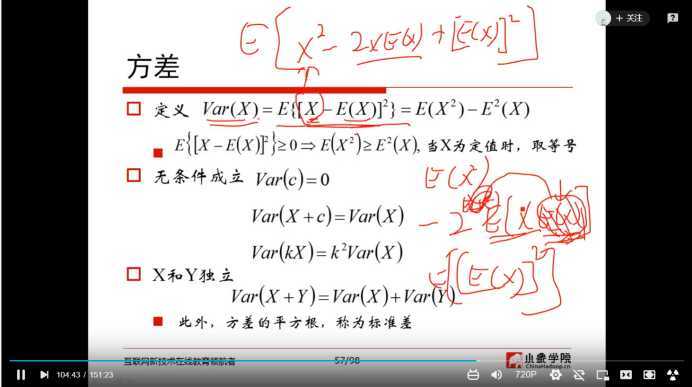 E[X² - 2XE(X) + [E(X)]²]
+ 关注
方差
定义 Var(X) = E{[X - E(X)]²} = E(X²) - E²(X)
E{[X - E(X)]²} ≥ 0 ⇒ E(X²) ≥ E²(X), 当X为定值时，取等号
E(X²)
无条件成立 Var(c) = 0
Var(X + c) = Var(X)
- 2 E[X
Var(kX) = k²Var(X)
E[[E(X)]²]
X和Y独立
Var(X + Y) = Var(X) + Var(Y)
此外，方差的平方根，称为标准差
互联网新技术在线教育领航者
57/98
小象学院
ChinaHadoop.cn
104:43 / 151:23
720P